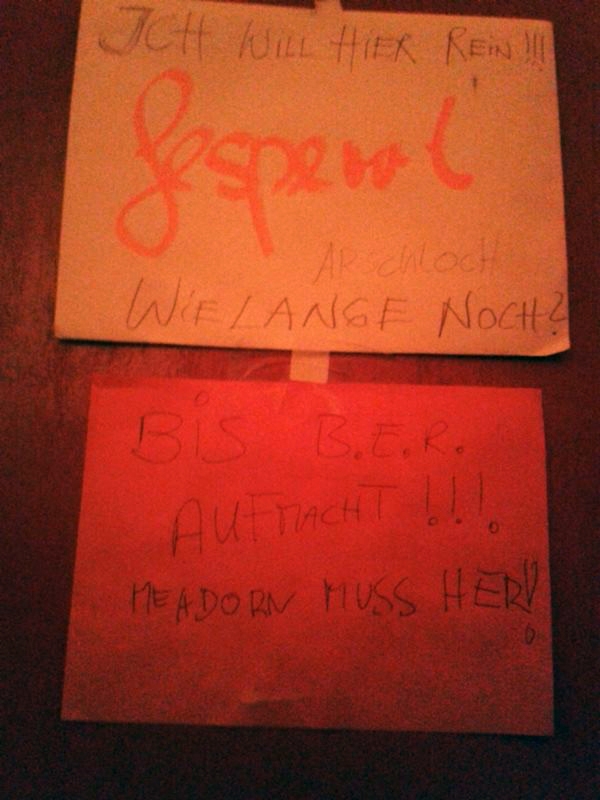 ICH WILL HIER REIN!!!
gesperrt
ARSCHLOCH
WIE LANGE NOCH?
BIS B.E.R.
AUFMACHT!!!
MEADORN MUSS HER!!